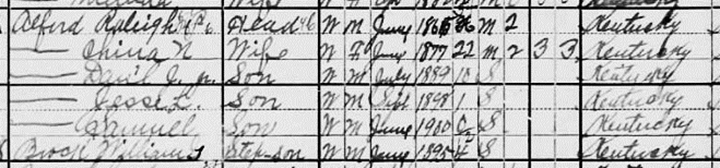 Alford Raleigh Head W M June 1865 M 2 Kentucky
— China N Wife W F June 1877 22 M 2 3 3 Kentucky
— Daril J. jr. Son W M July 1889 10 S Kentucky
— Jesse L. Son W M Sept 1898 1 S Kentucky
— Samuel Son W M June 1900 S Kentucky
Brock William Step-son W M June 1895 4 S Kentucky